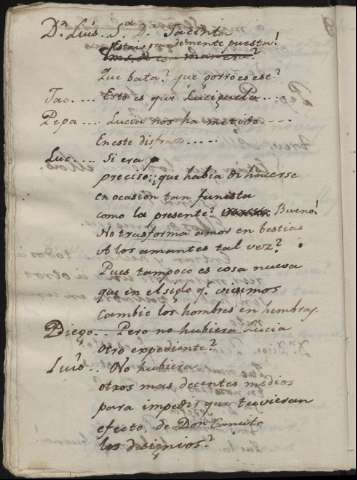 Dⁿ Luis.. Sª Dª Jacinta
Que bata? que gorro es ese?
Jac.... Esto es que Lucigüela....
Pepa.... Lucia nos ha metido....
En este disfraz....
Luc.... Si era
preciso; que habia de hacerse
en ocasion tan funesta
como la presente? Bueno!
No trasforma amor en bestias
A los amantes tal vez?
Pues tampoco es cosa nueva
que en el siglo q.e corremos
Cambie los hombres en hembras.
Diego... Pero no hubiera Lucia
otro expediente?
Luis.. No hubiera
otros mas decentes medios
para impedir que tuvieran
efecto, de Don
los designios?